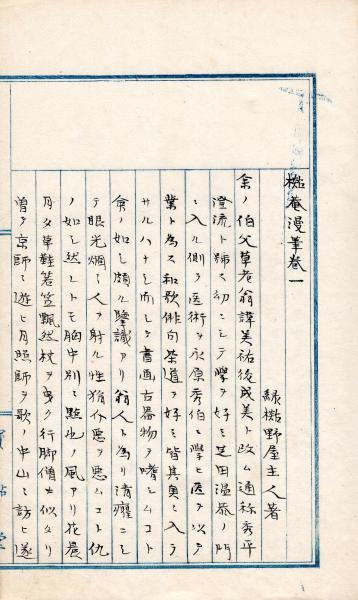 椎菴漫筆卷一
緑樹野屋主人著
余ノ伯父草老翁諱美祐後成美ト改ム通称秀平
澄流ト号ス幼ニシテ学ヲ好ミ芝田温恭ノ門
ニ入ル側ラ医術ヲ永原秀伯ニ学ヒ医ヲ以テ
業ト為ス和歌俳句茶道ヲ好ミ皆其奥ニ入ラ
サルハナシ而シテ書画古器物ヲ嗜ムコト
余ノ如シ頗ル鑒識アリ翁人ト為リ清癯ニシ
テ眼光烱々人ヲ射ル性猶介悪ヲ悪ムコト仇
ノ如シ然レトモ胸中別ニ點也ノ風アリ花晨
月夕草鞋蒻笠飄然杖ヲ曳ク行脚僧ニ似タリ
曽テ京師ニ遊ヒ月照師ヲ歌ノ中山ニ訪ヒ遂